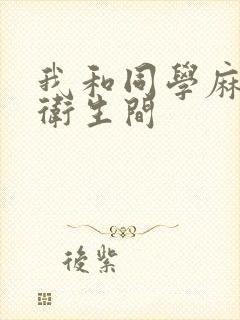 我和同學麻
衛生間
後紫